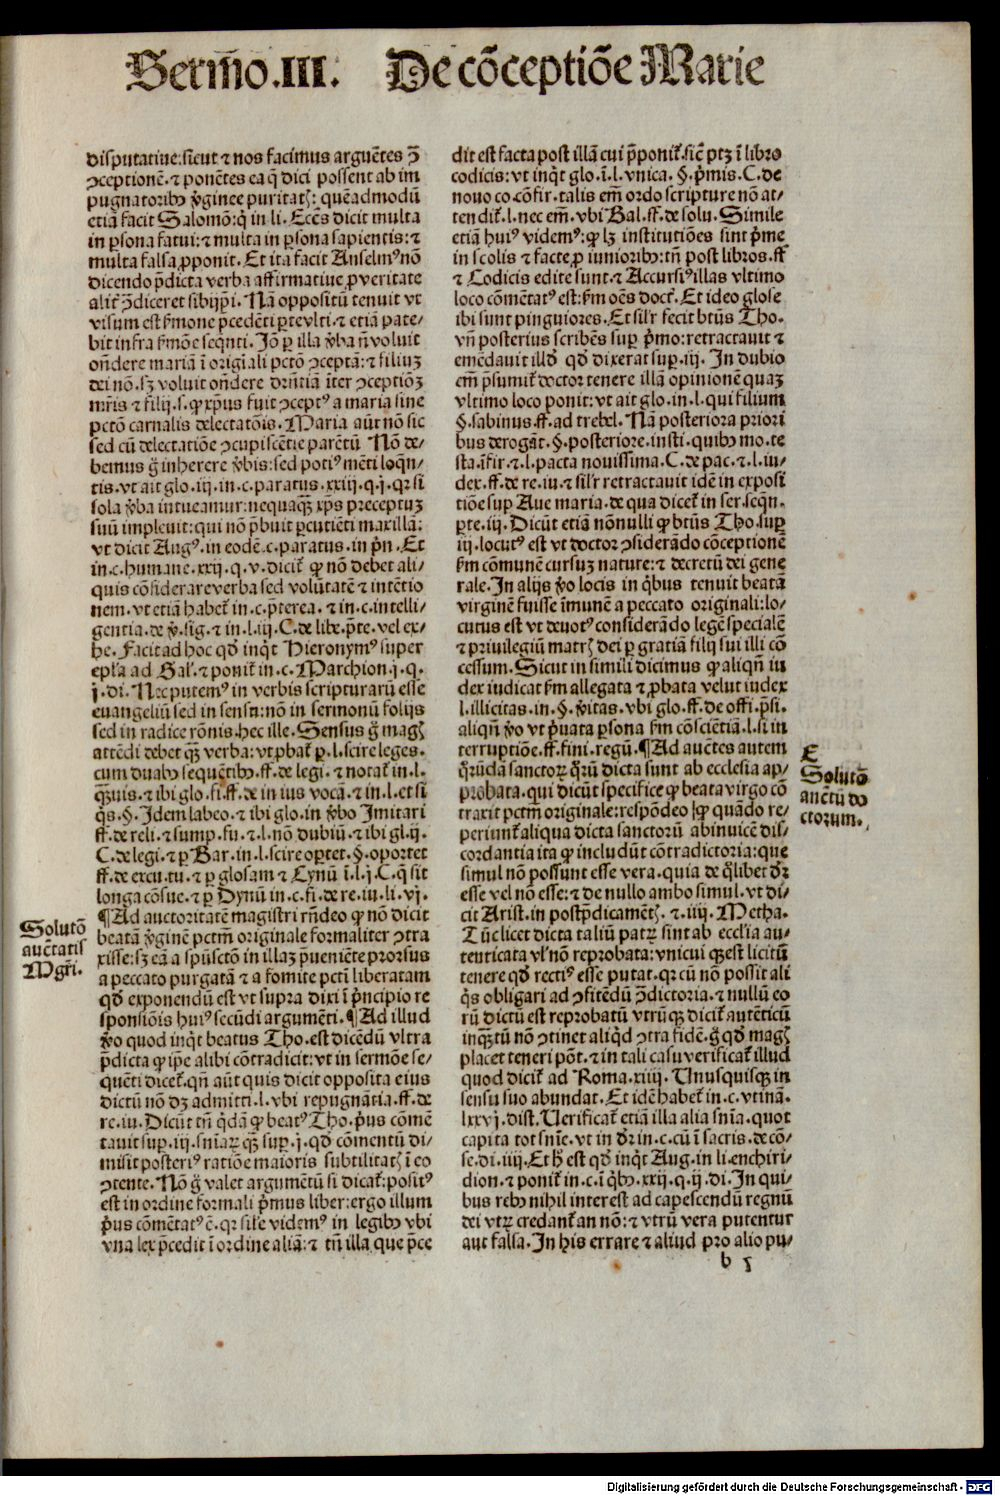 Sermo̅.III. De co̅ceptio̅e Marie
disputatiue:sicut ⁊ nos facimus argue̅tes ꝯ̅
ꝯceptione̅.⁊ pone̅tes ea q̅ dici possent ab im
pugnatoribꝰ v̓ginee puritatꝭ: que̅admodu̅
etia̅ facit Salomo̅:q̓ in li. Ecc̅s dicit multa
in ꝑsona fatui:⁊ multa in ꝑsona sapientis:⁊
multa falsa ꝓponit. Et ita facit Anselmꝰ no̅
dicendo p̅dicta verba affirmatiue ꝓ veritate
alit̓ ꝯ̅diceret sibijp̅i. Na̅ oppositu̅ tenuit vt
visum est ẜmone p̅cede̅ti ꝑte vlti.⁊ etia̅ pate-
bit infra ẜmo̅e seq̅nti. Io̅ ꝑ illa v̓ba n̅ voluit
on̅dere maria̅ i̅ origi̅ali pct̅o ꝯcepta̅:⁊ filiuꝫ
dei no̅.sꝫ voluit on̅dere dr̅ntia̅ i̅ter ꝯceptio̅ꝫ
mr̅is ⁊ filij.s.ꝙ xp̅us fuit ꝯceptꝰ a maria sine
pct̅o carnalis delectato̅is. Maria au̅t no̅ sic
sed cu̅ delectatio̅e ꝯcupisce̅tie pare̅tu̅ No̅ de-
bemus g̊ inherere v̓bis:sed potiꝰ me̅ti loq̅n-
tis.vt ait glo.iij.in.c.paratus.xxiij.q.j.qꝛ si
sola v̓ba intueamur:nequaq̅ꝫ xp̅s preceptuꝫ
suu̅ impleuit:qui no̅ p̅buit ꝑcutie̅ti maxilla̅:
vt dicit Augꝰ.in eode̅.c.paratus.in pn̅. Et
in.c.humane.xxij.q.v.dicit̓ ꝙ no̅ debet ali-
quis co̅siderare verba sed volu̅tate̅ ⁊ inte̅tio
nem.vt etia̅ habet̓ in.c.p̅terea.⁊ in.c.intelli-
gentia.de v̓.sig.⁊ in.l.iij.C.de libe.p̅te.vel ex-
he. Facit ad hoc qd̅ inq̓t Hieronymꝰ super
epl̅a ad Gal̓.⁊ ponit̓ in.c. Marchion.j.q.
j.di. Nec putemꝰ in verbis scripturaru̅ esse
euangeliu̅ sed in sensu:no̅ in sermonu̅ folijs
sed in radice ro̅nis.hec ille. Sensus g̊ magꝭ
atte̅di debet q̅ꝫ verba:vt ꝓbat̓ ꝑ.l.scire leges.
cum duabꝰ seque̅tibꝰ.ff.de legi.⁊ notat̓ in.l.
q̅ꝫuis.⁊ ibi glo.fi.ff.de in ius voca̅.⁊ in.l.et si
q̓s.§. Idem labeo.⁊ ibi glo.in v̓bo Imitari
ff.de reli.⁊ sump.fu.⁊ l.no̅ dubiu̅.⁊ ibi gl.ij.
C.de legi.⁊ ꝑ Bar.in.l.scire oꝑtet.§.oportet
ff.de excu.tu.⁊ ꝑ glosam ⁊ Cynu̅ i̅.l.j.C.q̅ sit
longa co̅sue.⁊ ꝑ Dynu̅ in.c.fi.de re.iu.li.vj.
¶Ad auctoritate̅ magistri rn̅deo ꝙ no̅ dicit
beata̅ v̓gine̅ pctm̅ originale formaliter ꝯtra
xisse:sꝫ ea̅ a spu̅scto̅ in illaꝫ p̅uenie̅te prorsus
a peccato purgata̅ ⁊ a fomite pct̅i liberatam
qd̅ exponendu̅ est vt supra dixi i̅ p̓ncipio re
sponsio̅is huiꝰ secu̅di argume̅ti.¶Ad illud
v̓o quod inq̓t beatus Tho.est dice̅du̅ vltra
p̅dicta ꝙ ip̅e alibi co̅tradicit:vt in sermo̅e se-
que̅ti dicet̓.qn̅ au̅t quis dicit opposita eius
dictu̅ no̅ dꝫ admitti.l.vbi repugna̅tia.ff.de
re.iu. Dicu̅t tn̅ q̓da̅ ꝙ beatꝰ Tho.p̓us co̅me̅
tauit suꝑ.iij.sn̅iaꝝ q̅ꝫ suꝑ.j.qd̅ co̅mentu̅ di-
misit posteriꝰ ratio̅e maioris subtilitatꝭ i̅ eo
ꝯtente. No̅ g̊ valet argume̅tu̅ si dicat̓:positꝰ
est in ordine formali p̓mus liber:ergo illum
p̓us co̅me̅tatꝰ e̅.qꝛ sil̓e videmꝰ in legibꝰ vbi
vna lex p̅cedit i̅ ordine alia̅:⁊ tn̅ illa que p̅ce
Soluto̅
auc̅tatis
Mgr̅i.
dit est facta post illa̅ cui p̅ponit̓.sic̅ ptꝫ i̅ libro
codicis:vt inq̓t glo.i̅.l.vnica.§.p̓mis.C.de
nouo co.co̅fir.talis em̅ ordo scripture no̅ at-
tendit̓.l.nec em̅.vbi Bal.ff.de solu. Simile
etia̅ huiꝰ videmꝰ:ꝙ lꝫ institutio̅es sint p̓me
in scolis ⁊ facte ꝓ iunioribꝰ:tn̅ post libros.ff
⁊ Codicis edite sunt.⁊ Accursiꝰ illas vltimo
loco co̅me̅tatꝰ est:ẜm oe̅s doct̓. Et ideo glose
ibi sunt pinguiores. Et sil̓r fecit bt̅us Tho.
vn̅ posterius scribe̅s suꝑ p̓mo:retractauit ⁊
eme̅dauit illd̓ qd̅ dixerat suꝑ.iij. In dubio
em̅ p̅sumit̓ doctor tenere illa̅ opinione̅ quaꝫ
vltimo loco ponit:vt ait glo.in.l.qui filium
§.sabinus.ff.ad trebel. Na̅ posteriora priori
bus deroga̅t.§.posteriore.insti.quibꝰ mo.te
sta.i̅fir.⁊.l.pacta nouissima.C.de pac.⁊.l.iu-
dex.ff.de re.iu.⁊ sil̓r retractauit ide̅ in exposi
tio̅e suꝑ Aue maria.de qua dicet̓ in ser.seq̅n.
ꝑte.iij. Dicu̅t etia̅ no̅nulli ꝙ bt̅us Tho.suꝑ
iij.locutꝰ est vt doctor ꝯsidera̅do co̅ceptione̅
ẜm co̅mune̅ cursuꝫ nature:⁊ decretu̅ dei gene
rale. In alijs v̓o locis in q̓bus tenuit beata̅
virgine̅ fuisse i̅mune̅ a peccato originali:lo-
cutus est vt deuotꝰ considera̅do lege̅ speciale̅
⁊ priuilegiu̅ matrꝭ dei ꝑ gratia̅ filij sui illi co̅
cessum. Sicut in simili dicimus ꝙ aliqn̅ iu
dex iudicat ẜm allegata ⁊ ꝓbata velut iudex
l.illicitas.in.§.v̓itas.vbi glo.ff.de offi.p̅si.
aliqn̅ v̓o vt p̓uata ꝑsona ẜm co̅scie̅tia̅.l.si in
terruptio̅e.ff.fini.regu̅.¶Ad auc̅tes autem
q̓ru̅da̅ sanctoꝝ q̓ru̅ dicta sunt ab ecclesia ap-
probata.qui dicu̅t specifice ꝙ beata virgo co̅
traxit pctm̅ originale:respo̅deo ꝙ qua̅do re-
periunt̓ aliqua dicta sanctoru̅ abinuice̅ dis-
cordantia ita ꝙ includu̅t co̅tradictoria:que
simul no̅ possunt esse vera.quia de q̓libet dr̅
esse vel no̅ esse:⁊ de nullo ambo simul.vt di-
cit Arist.in postp̅dicame̅tꝭ.⁊.iiij. Metha.
Tu̅c licet dicta taliu̅ patꝝ sint ab eccl̅ia au-
tenticata vl̓ no̅ reproba̅ta:vnicui q̅ꝫ est licitu̅
tenere qd̅ rectiꝰ esse putat.qꝛ cu̅ no̅ possit ali
q̓s obligari ad ꝯfite̅du̅ ꝯ̅dictoria.⁊ nullu̅ eo
ru̅ dictu̅ est reprobatu̅ vtru̅qꝫ dicit̓ aute̅ticu̅
inq̅ꝫtu̅ no̅ ꝯtinet aliq̓d ꝯtra fide̅.g̊ qd̅ magꝭ
placet teneri po̅t.⁊ in tali casu verificat̓ illud
quod dicit̓ ad Roma.xiiij. Unusquisqꝫ in
sensu suo abundat. Et ide̅ habet̓ in.c.vtina̅.
lxxvj.dist. Verificat̓ etia̅ illa alia sn̅ia.quot
capita tot sn̅ie.vt in dr̅ in.c.cu̅ i̅ sacris.de co̅-
se.di.iiij. Et h̅ est qd̅ inq̓t Aug.in li.enchiri-
dion.⁊ ponit̓ in.c.i̅ q̓bꝰ.xxij.q.ij.di. In qui-
bus rebꝰ nihil interest ad capescendu̅ regnu̅
dei vtꝝ credant̓ an no̅:⁊ vtru̅ vera putentur
aut falsa. In his errare ⁊ aliud pro alio pu-
E
Soluto̅
auc̅tu̅ do
ctorum.
b 5
Digitalisierung gefördert durch die Deutsche Forschungsgemeinschaft - DFG